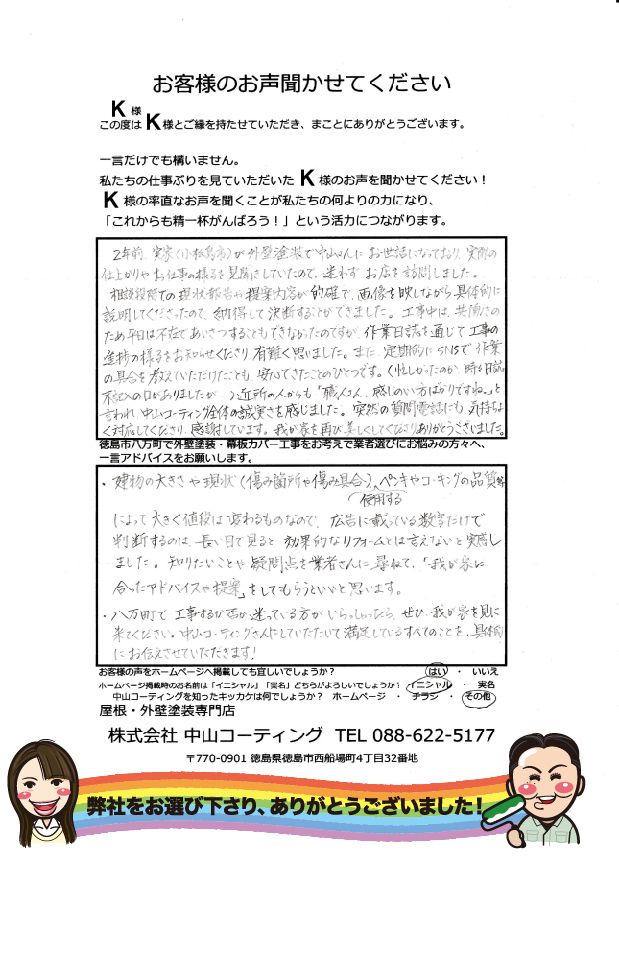 お客様のお声聞かせてください
K 様
この度は K 様とご縁を持たせていただき、まことにありがとうございます。
一言だけでも構いません。
私たちの仕事ぶりを見ていただいた K 様のお声を聞かせてください！
K 様の率直なお声を聞くことが私たちの何よりの力になり、
「これからも精一杯がんばろう！」という活力につながります。
2年前、実家(小松島市)が外壁塗装で中山さんにお世話になっており、実際の
仕上がりやお仕事の様子を見聞きしていたので、迷わずお店を訪問しました。
相談段階での現状報告や提案内容が的確で、画像を映しながら具体的に
説明してくださったので、納得して決断することができました。工事中は、共働きの
ため平日は不在であいさつすることもできなかったのですが、作業日誌を通じて工事の
進捗の様子をお知らせくださり有難く思いました。また、定期的にSNSで作業
の具合を教えていただけたことも安心できたことのひとつです。(忙しかったのか、時々日誌
未記入の日がありましたが…)近所の人からも「職人さん、感じのいい方ばかりですね。」と
言われ、中山コーティング全体の誠実さを感じました。突然の質問電話にも、気持ちよ
く対応してくださり、感謝しています。我が家を再び美しくしてくださりありがとうございました。
徳島市八万町で外壁塗装・幕板カバー工事をお考えで業者選びにお悩みの方々へ、
一言アドバイスをお願いします。
・建物の大きさや現状(傷み箇所や傷み具合)、ペンキやコーキングの品質等
使用する
によって大きく値段は変わるものなので、広告に載っている数字だけで
判断するのは、長い目で見ると効果的なリフォームとは言えないと実感し
ました。知りたいことや疑問点を業者さんに尋ねて、「我が家に
合ったアドバイスや提案」をしてもらうといいと思います。
・八万町で工事するか否か迷っている方がいらっしゃったら、ぜひ、我が家を見に
来てください。中山コーティングさんにしていただいて満足しているすべてのことを、具体的
にお伝えさせていただきます！
お客様の声をホームページへ掲載しても宜しいでしょうか？ はい ・ いいえ
ホームページ掲載時のお名前は「イニシャル」「実名」どちらがよろしいでしょうか？ イニシャル ・ 実名
中山コーティングを知ったキッカケは何でしょうか？ ホームページ ・ チラシ ・ その他
屋根・外壁塗装専門店
株式会社 中山コーティング TEL 088-622-5177
〒770-0901 徳島県徳島市西船場町4丁目32番地
弊社をお選び下さり、ありがとうございました！